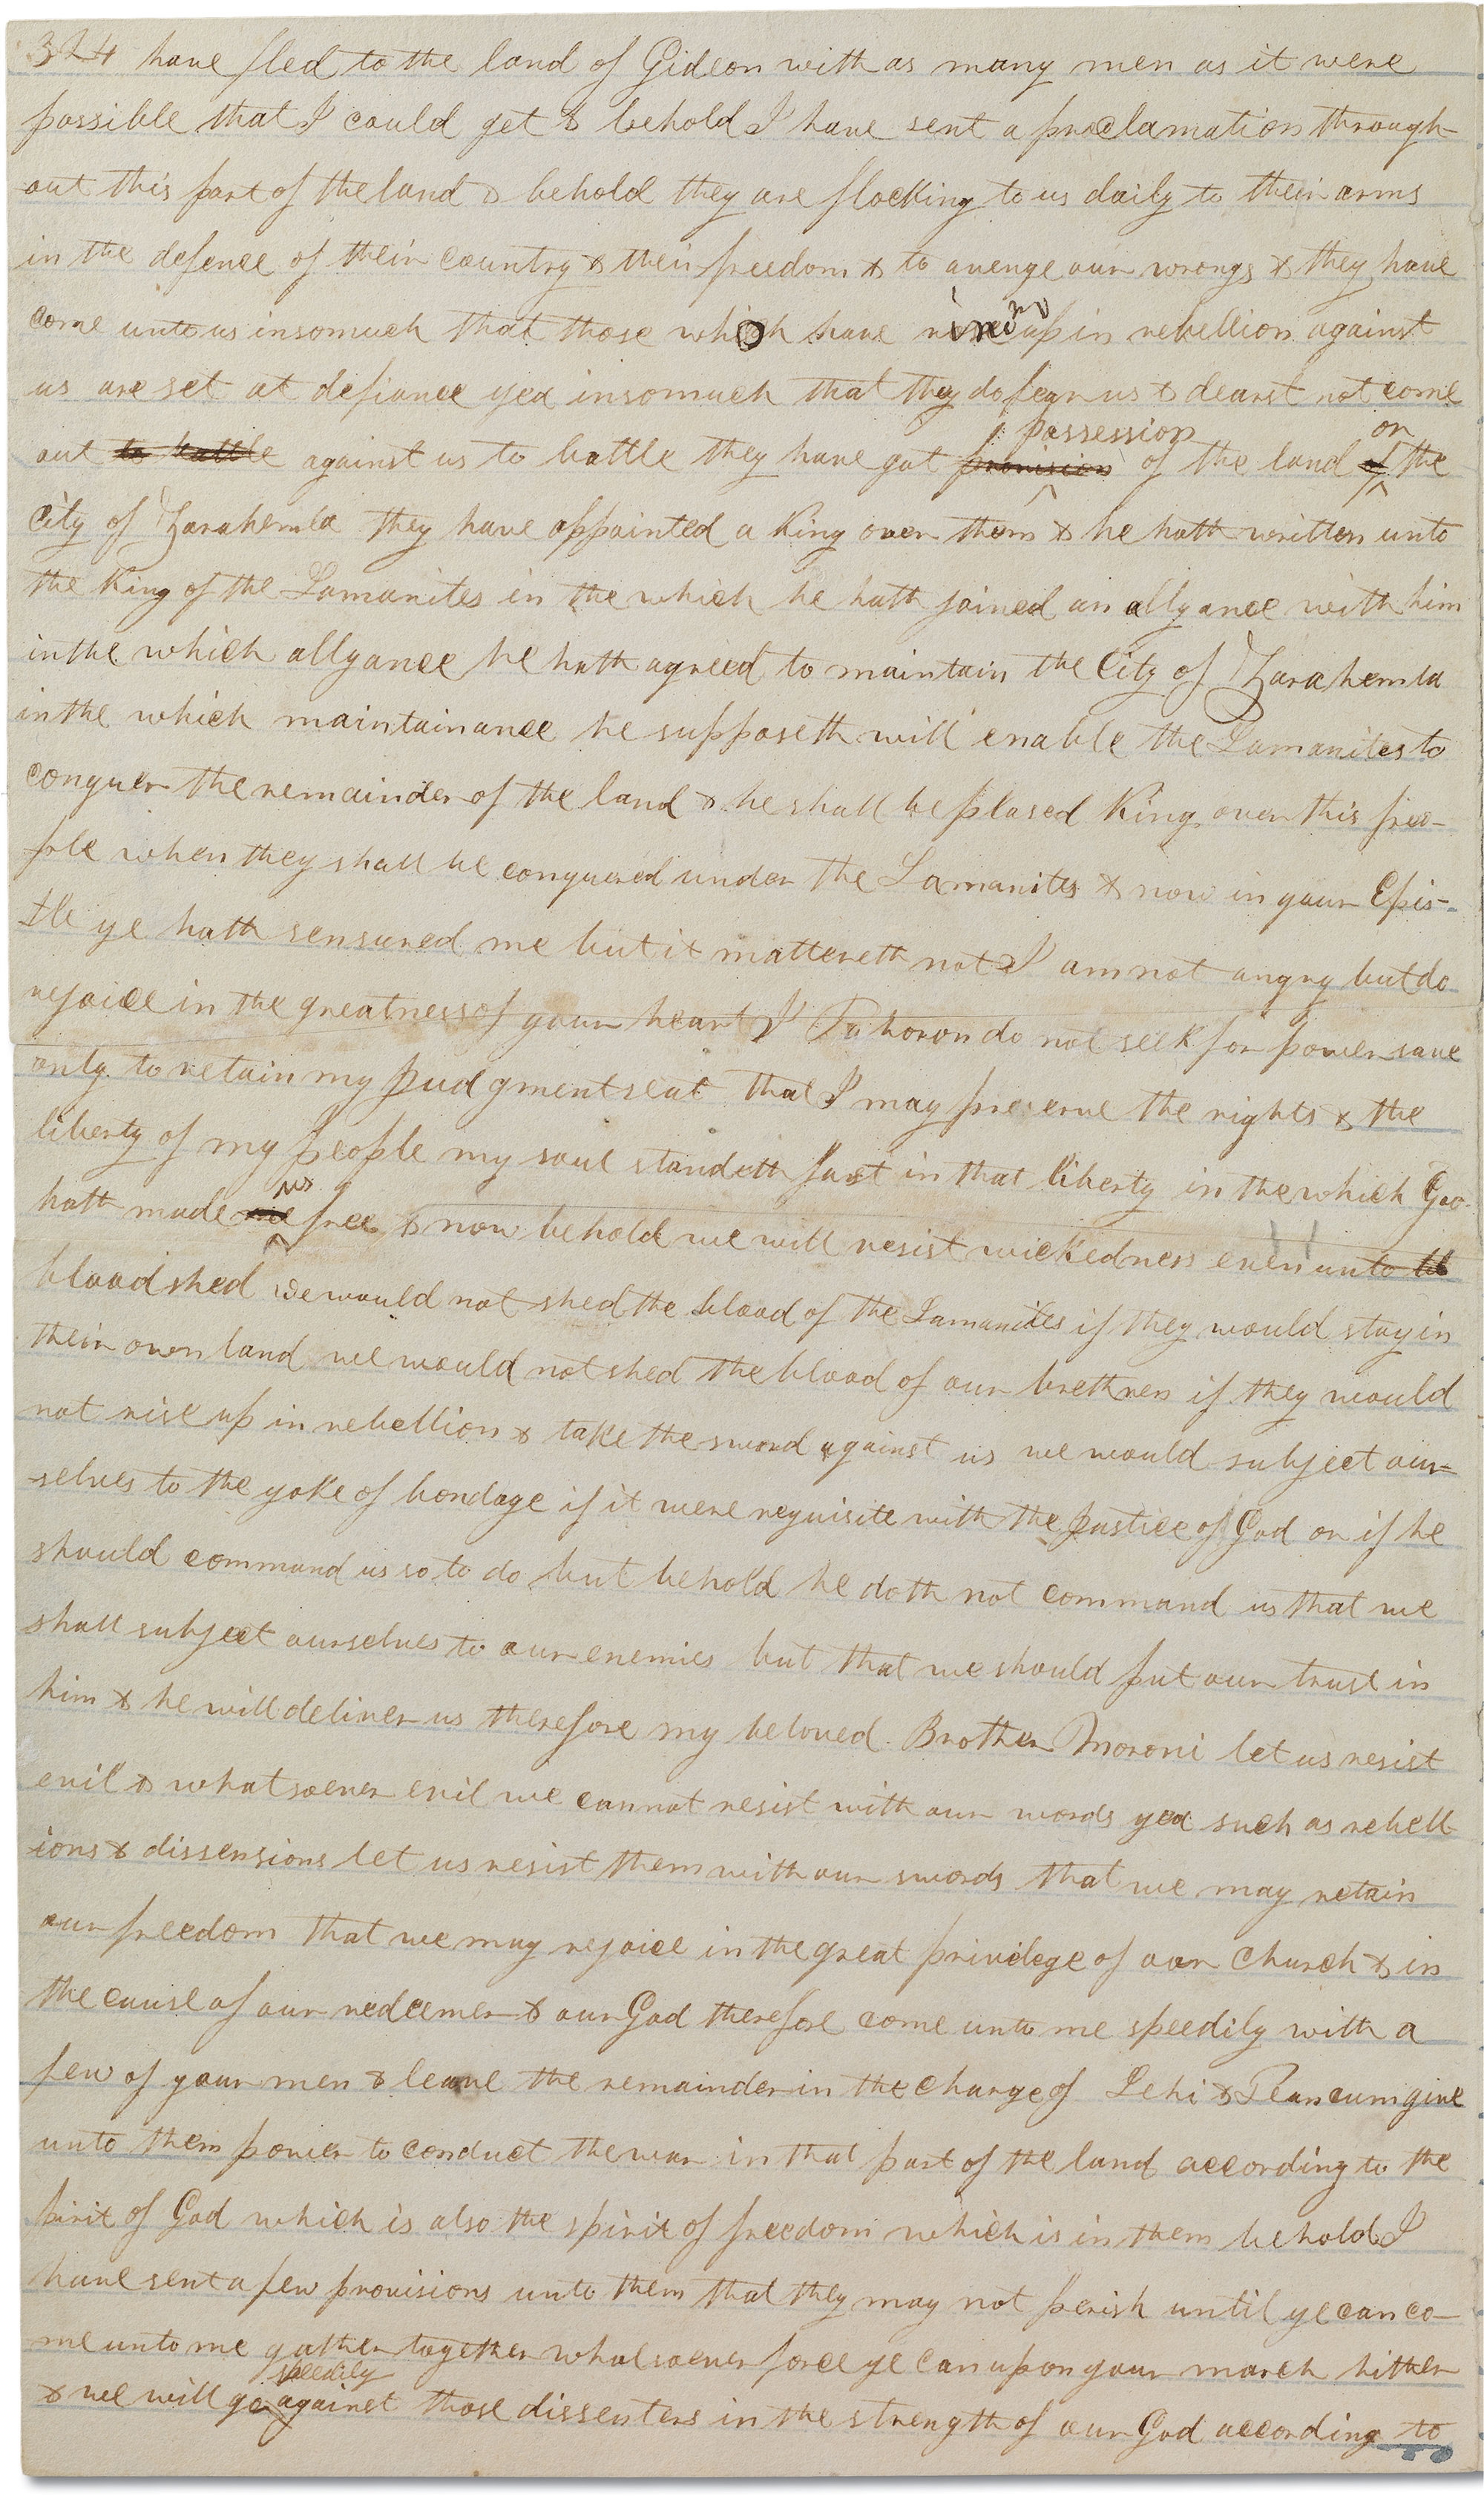 324 have fled to the land of Gideon with as many men as it were
possible that I could get & behold I have sent a proclamation through-
out this part of the land & behold they are flocking to us daily to their arms
in the defence of their country & their freedom & to avenge our wrongs & they have
come unto us insomuch that those which have risen up in rebellion against
us are set at defiance yea insomuch that they do fear us & dearst not come
possession on
out to battle against us to battle they have got provision of the land of the
City of Zarahemla they have appointed a King over them & he hath written unto
the King of the Lamanites in the which he hath joined an allyance with him
in the which allyance he hath agreed to maintain the City of Zarahemla
in the which maintainance he supposeth will enable the Lamanites to
conquer the remainder of the land & he shall be plased King over this peo-
ple when they shall be conquered under the Lamanites & now in your Epis-
tle ye hath sensured me but it mattereth not I am not angry but do
rejoice in the greatness of your heart I Pahoron do not seek for power save
only to retain my judgment seat that I may preserve the rights & the
liberty of my people my soul standeth fast in that liberty in the which God
us
hath made me free & now behold we will resist wickedness even unto bl
bloodshed we would not shed the blood of the Lamanites if they would stay in
their own land we would not shed the blood of our brethren if they would
not rise up in rebellion & take the sword against us we would subject our-
selves to the yoke of bondage if it were requisite with the justice of God or if he
should command us so to do but behold he doth not command us that we
shall subject ourselves to our enemies but that we should put our trust in
him & he will deliver us therefore my beloved Brother Moroni let us resist
evil & whatsoever evil we cannot resist with our words yea such as rebell
ions & dissensions let us resist them with our swords that we may retain
our freedom that we may rejoice in the great privilege of our Church & in
the cause of our redeemer & our God therefore come unto me speedily with a
few of your men & leave the remainder in the charge of Lehi & Teancum give
unto them power to conduct the war in that part of the land according to the
spirit of God which is also the spirit of freedom which is in them behold I
have sent a few provisions unto them that they may not perish until ye can co-
me unto me gather together whatsoever force ye can upon your march hither
speedily
& we will go against those dissenters in the strength of our God according to